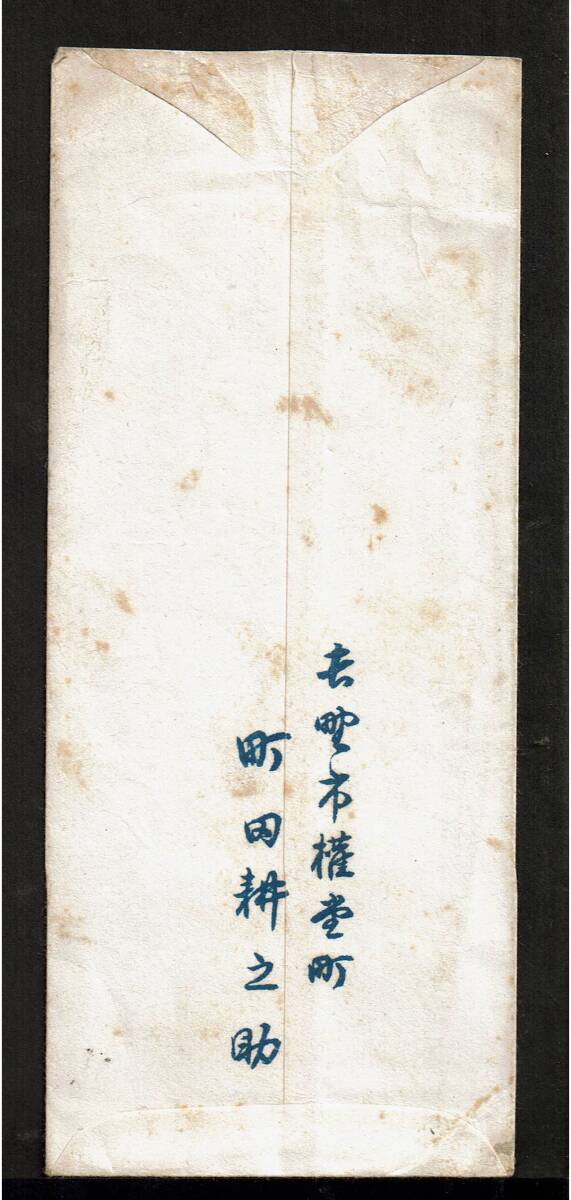 長野市權堂町
町田耕之助